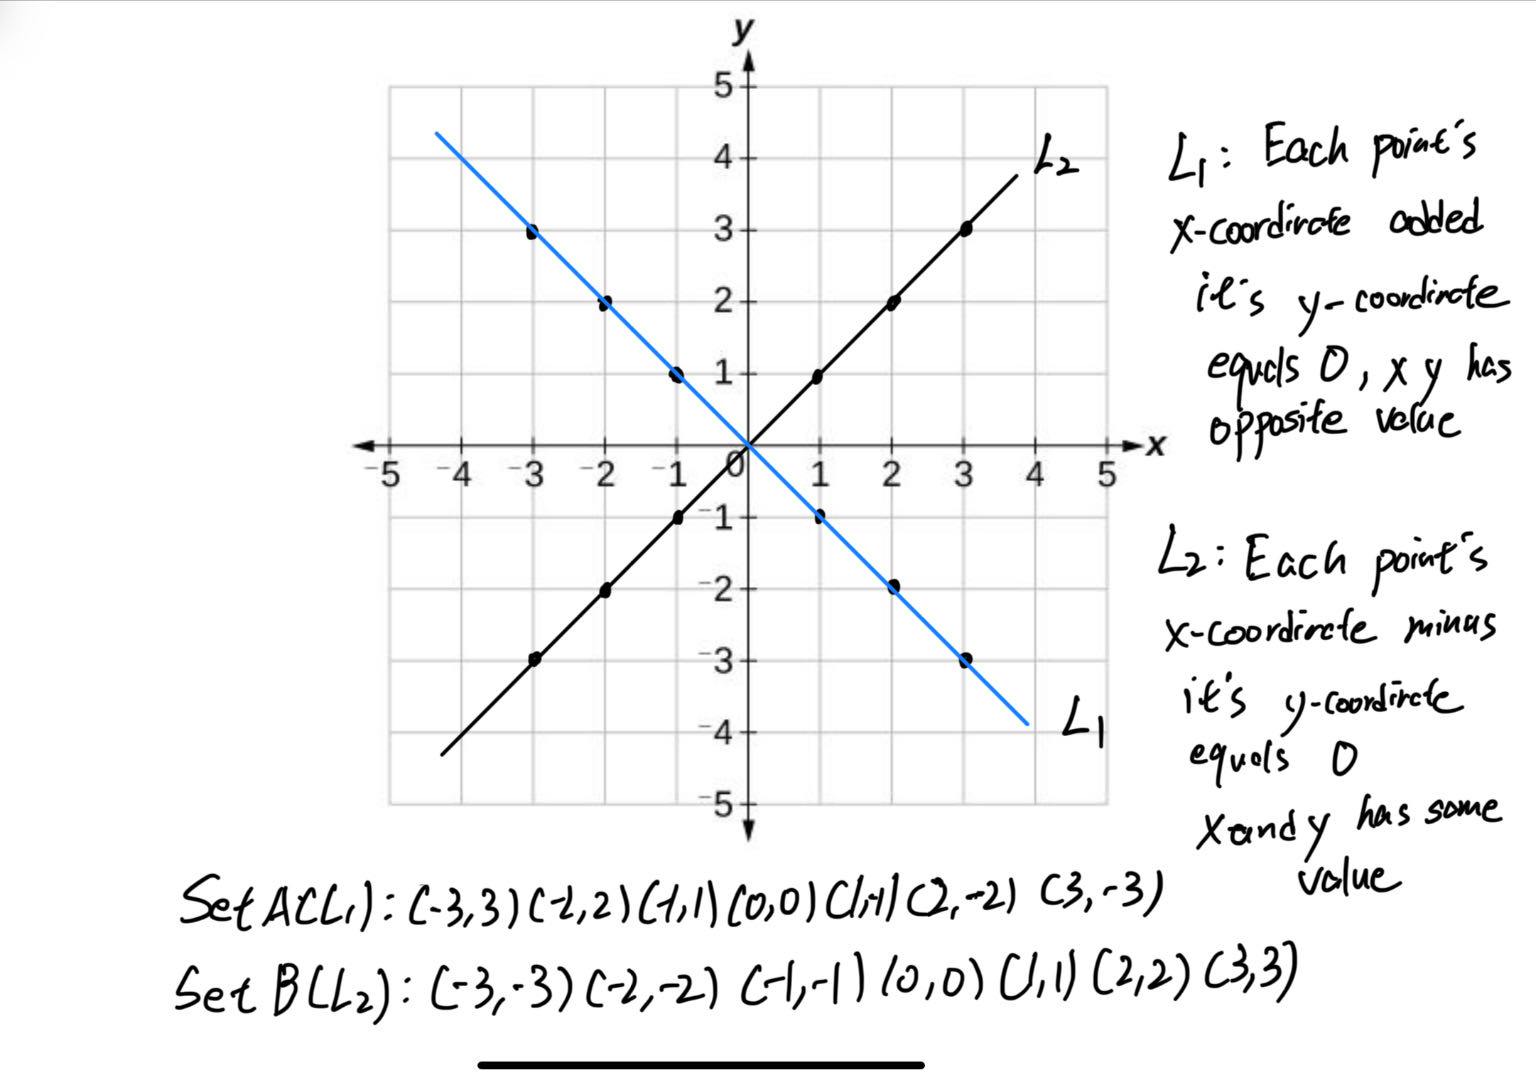 y
5
4
3
2
1
0
-5 -4 -3 -2 -1 1 2 3 4 5 x
-1
-2
-3
-4
-5
L2
L1
L1: Each point's
x-coordinate added
it's y-coordinate
equals 0, x y has
opposite value
L2: Each point's
x-coordinate minus
it's y-coordinate
equals 0
x and y has same
value
Set A(L1): (-3,3) (-2,2) (-1,1) (0,0) (1,-1) (2,-2) (3,-3)
Set B(L2): (-3,-3) (-2,-2) (-1,-1) (0,0) (1,1) (2,2) (3,3)